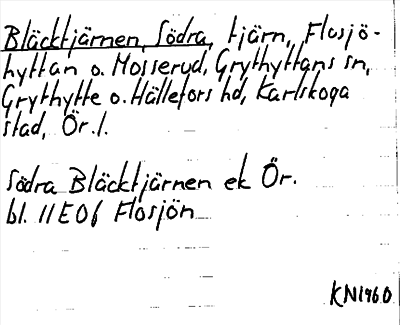 Bläcktjärnen, Södra, tjärn, Flosjö-
hyttan o. Mosserud, Grythyttans sn,
Grythytte o. Hällefors hd, Karlskoga
stad, Ör. l.
Södra Bläcktjärnen ek Ör.
bl. 11E0f Flosjön
KN1960